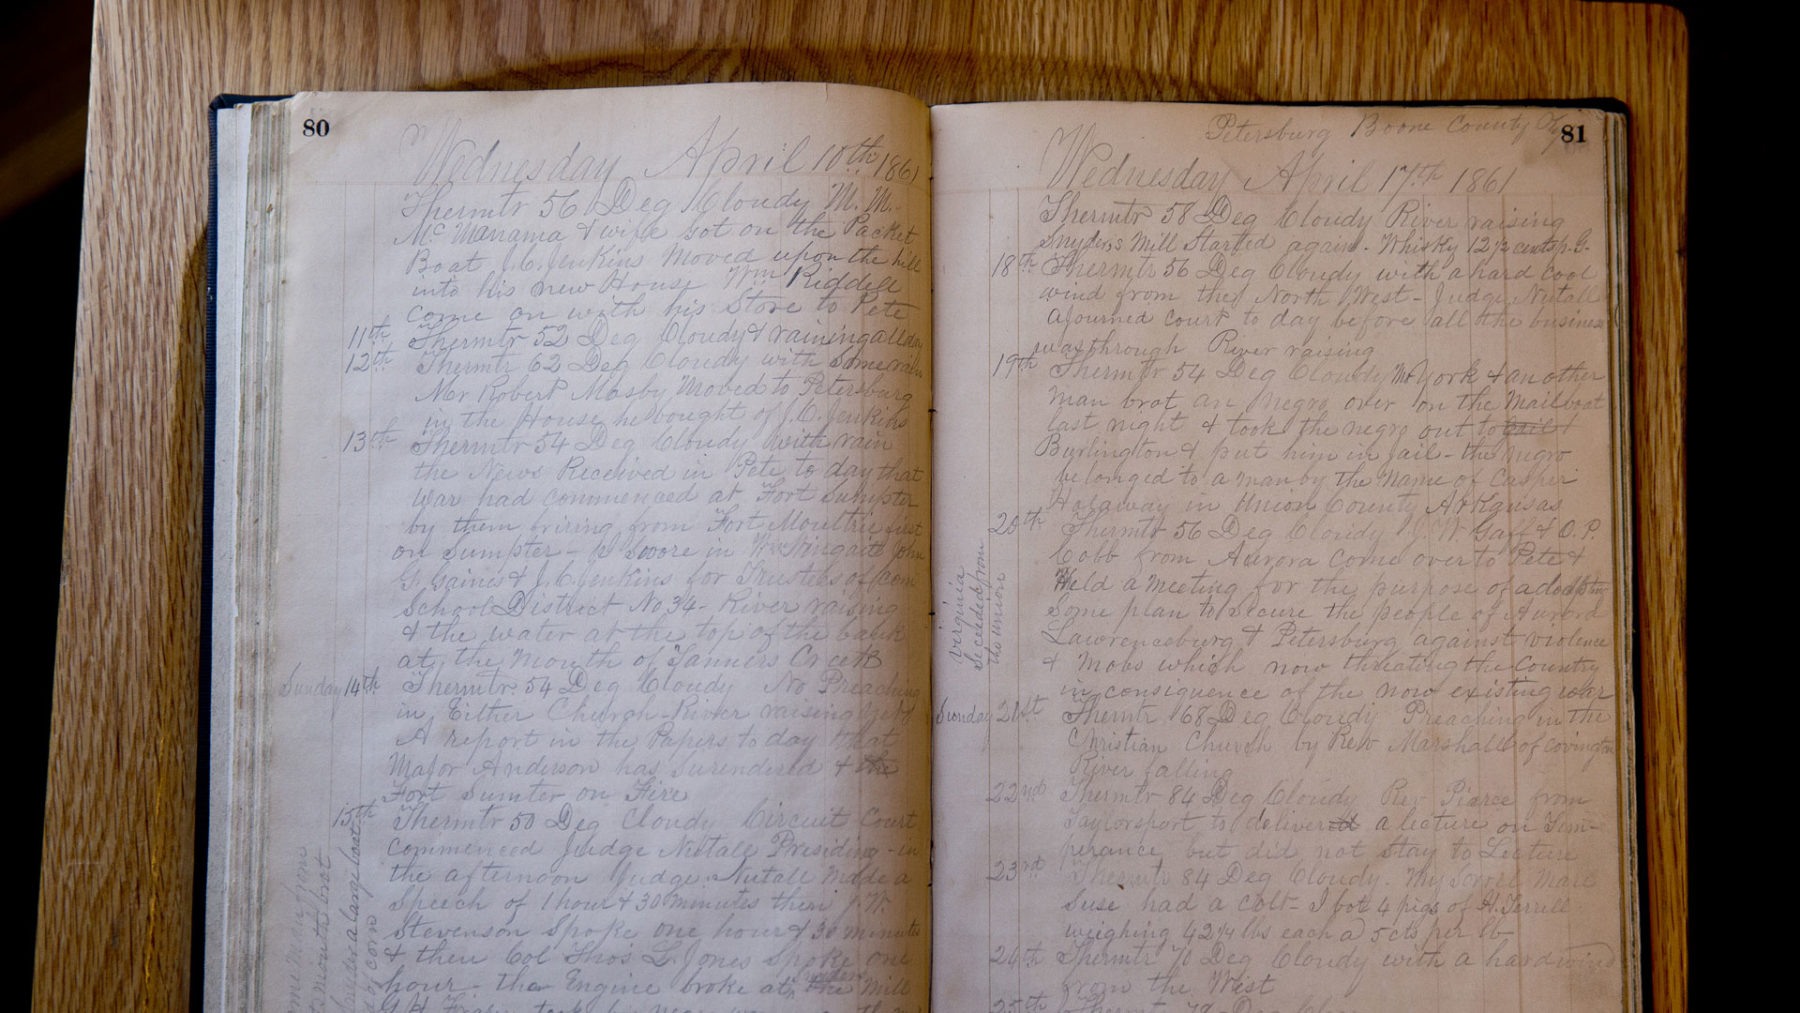 80
Wednesday April 10th 1861
Thermtr 56 Deg Cloudy M. M.
Mc Manama & wife got on the Packet
Boat J. C. Jenkins Moved upon the hill
into his new House Wm Riddell
come on with his Store to Pete
11th Thermtr 52 Deg Cloudy & raining all day
12th Thermtr 62 Deg Cloudy with some rain
Mr Robert Mosby Moved to Petersburg
in the House he bought of J. C. Jenkins
13th Thermtr 54 Deg Cloudy with rain
the News Received in Pete to day that
War had commenced at Fort Sumpter
by them firing from Fort Moultrie first
on Sumpter - I Swore in John
G. Gaines & J. C. Jenkins for Trustees of Com
School District No 34 - River raising
& the water at the top of the bank
at the Mouth of Tanners Creek
Sunday 14th Thermtr 54 Deg Cloudy No Preaching
in Either Church River raising yet
A report in the Papers to day that
Major Anderson has surendered & the
Fort Sumter on Fire
15th Thermtr 50 Deg Cloudy Circuit Court
commenced Judge Nutall Presiding - in
the afternoon Judge Nutall made a
Speech of 1 hour & 30 minutes then J. W.
Stevenson Spoke one hour & 30 minutes
& then Col Thos L. Jones Spoke one
hour - the Engine broke at the Mill
man from
mouth brot
Snyder a large boat
of corn
81
Petersburg Boone County Ky
Wednesday April 17th 1861
Thermtr 58 Deg Cloudy River raising
Snyders Mill Started again. Whisky 12 1/2 cents p. G.
18th Thermtr 56 Deg Cloudy with a hard cool
wind from the North West - Judge Nutall
ajourned court to day before all the business
was through River raising
19th Thermtr 54 Deg Cloudy Mr York & another
man brot an Negro over on the Mailboat
last night & took the negro out to jail
Burlington & put him in jail - the negro
belonged to a man by the Name of Casper
Holaway in Union County Arkansas
20th Thermtr 56 Deg Cloudy J. W. Gaff & O. P.
Cobb from Aurora Come over to Pete &
Held a Meeting for the purpose of
some plan to Secure the people of Aurora
Lawrenceburg & Petersburg against violence
& Mobs which now threating the County
in consiquence of the now existing war
virginia
seceeded from
the union
Sunday 21st Thermtr 68 Deg Cloudy Preaching in the
Christian Church by Rev Marshall of Covington
River falling
22nd Thermtr 84 Deg Cloudy Rev Pierce from
Taylorsport to deliver a lecture on Tem-
perance but did not Stay to Lecture
23rd Thermtr 84 Deg Cloudy. My Sorrel Mare
Suse had a colt - I bot 4 pigs of A. Terrill
weighing 42 1/4 lbs each @ 5 cts per lb
24th Thermtr 70 Deg Cloudy with a hard wind
from the West
25th Thermtr Deg